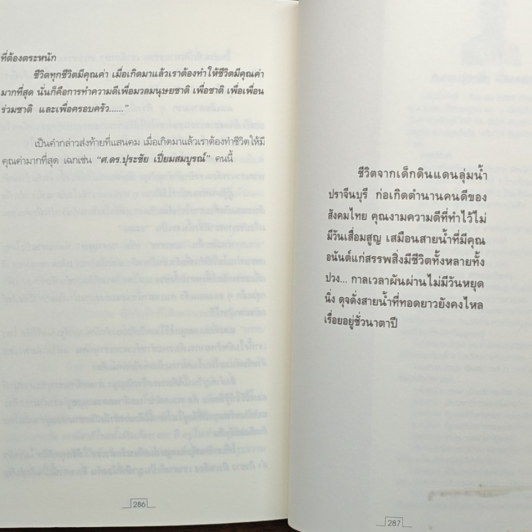 ที่ต้องตระหนัก
ชีวิตทุกชีวิตมีคุณค่า เมื่อเกิดมาแล้วเราต้องทำให้ชีวิตมีคุณค่า
มากที่สุด นั่นก็คือการทำความดีเพื่อมวลมนุษยชาติ เพื่อชาติ เพื่อเพื่อน
ร่วมชาติ และเพื่อครอบครัว......”
เป็นคำกล่าวส่งท้ายที่แสนคม เมื่อเกิดมาแล้วเราต้องทำชีวิตให้มี
คุณค่ามากที่สุด เฉกเช่น “ศ.ดร.ปุระชัย เปี่ยมสมบูรณ์” คนนี้
286
ชีวิตจากเด็กดินแดนลุ่มน้ำ
ปราจีนบุรี ก่อเกิดตำนานคนดีของ
สังคมไทย คุณงามความดีที่ทำไว้ไม่
มีวันเสื่อมสูญ เสมือนสายน้ำที่มีคุณ
อนันต์แก่สรรพสิ่งมีชีวิตทั้งหลายทั้ง
ปวง... กาลเวลาผันผ่านไม่มีวันหยุด
นิ่ง ดุจดั่งสายน้ำที่ทอดยาวยังคงไหล
เรื่อยอยู่ชั่วนาตาปี
287